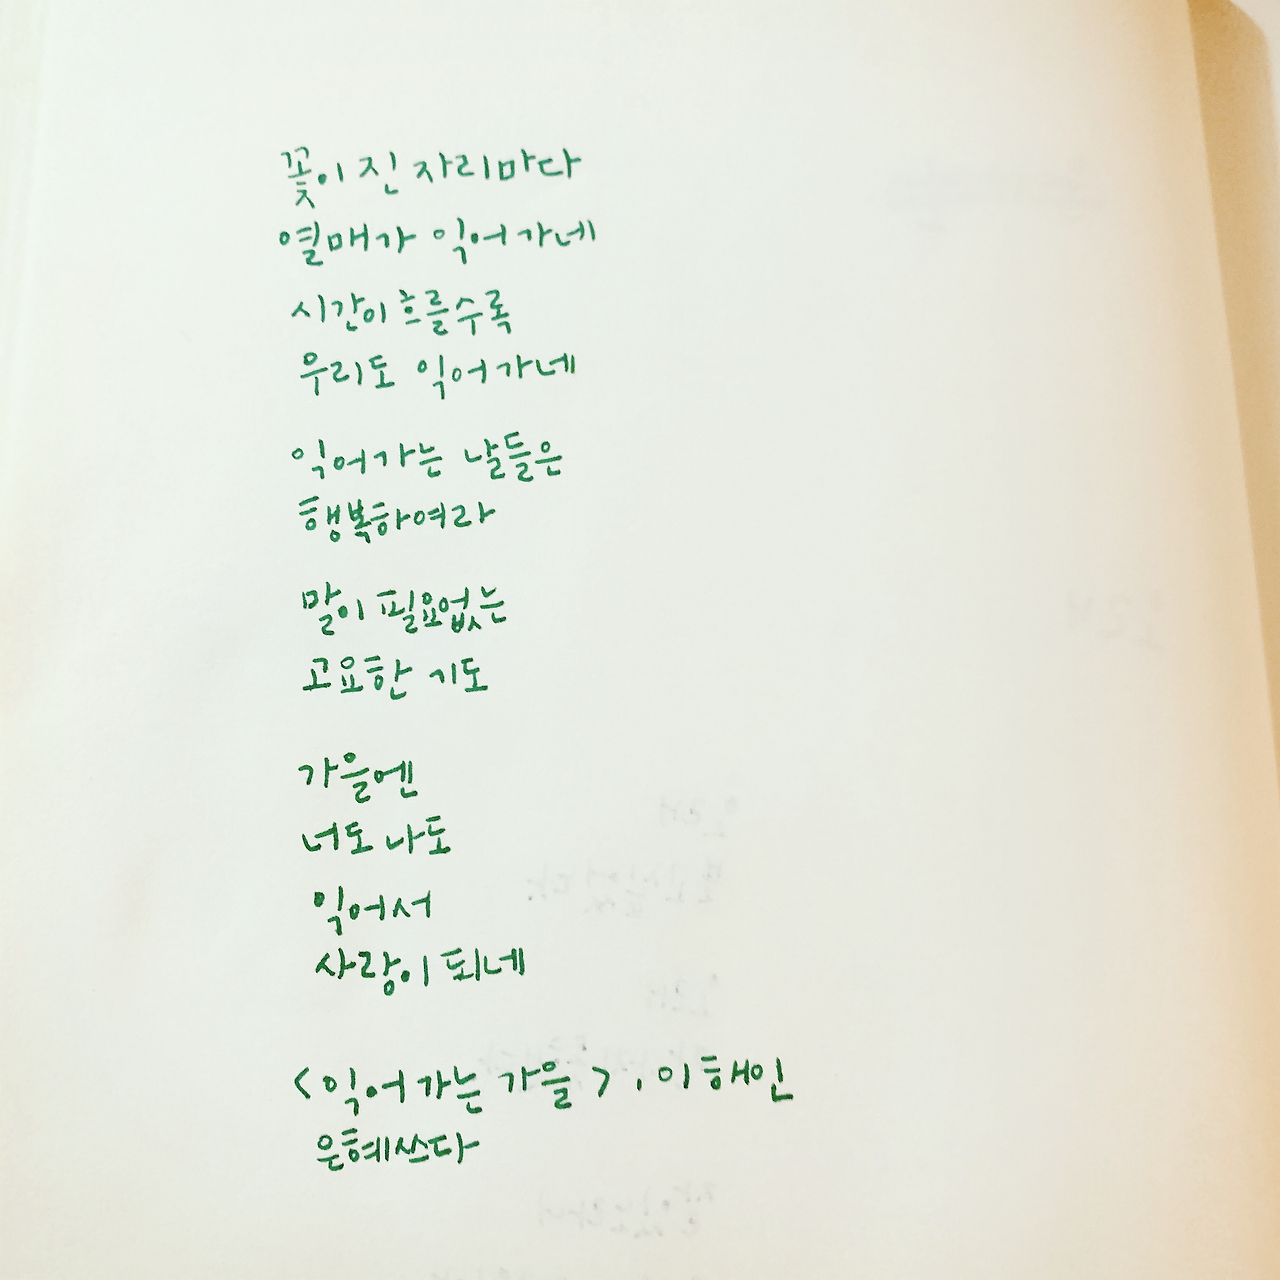 꽃이 진 자리마다
열매가 익어가네
시간이 흐를수록
우리도 익어가네
익어가는 날들은
행복하여라
말이 필요없는
고요한 기도
가을엔
너도 나도
익어서
사랑이 되네
<익어가는 가을>, 이해인
은혜쓰다